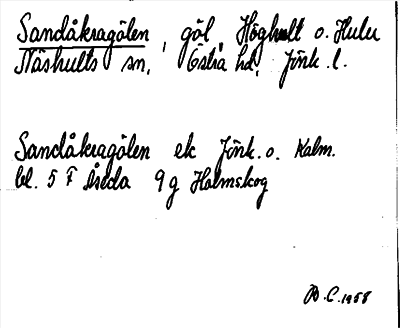 Sandåkragölen, göl, Höghult o. Hulu
Näshults sn, Östra hd, Jönk. l.
Sandåkragölen ek Jönk. o. Kalm.
bl. 5 F Åseda 9 g Holmskog
B.C. 1958